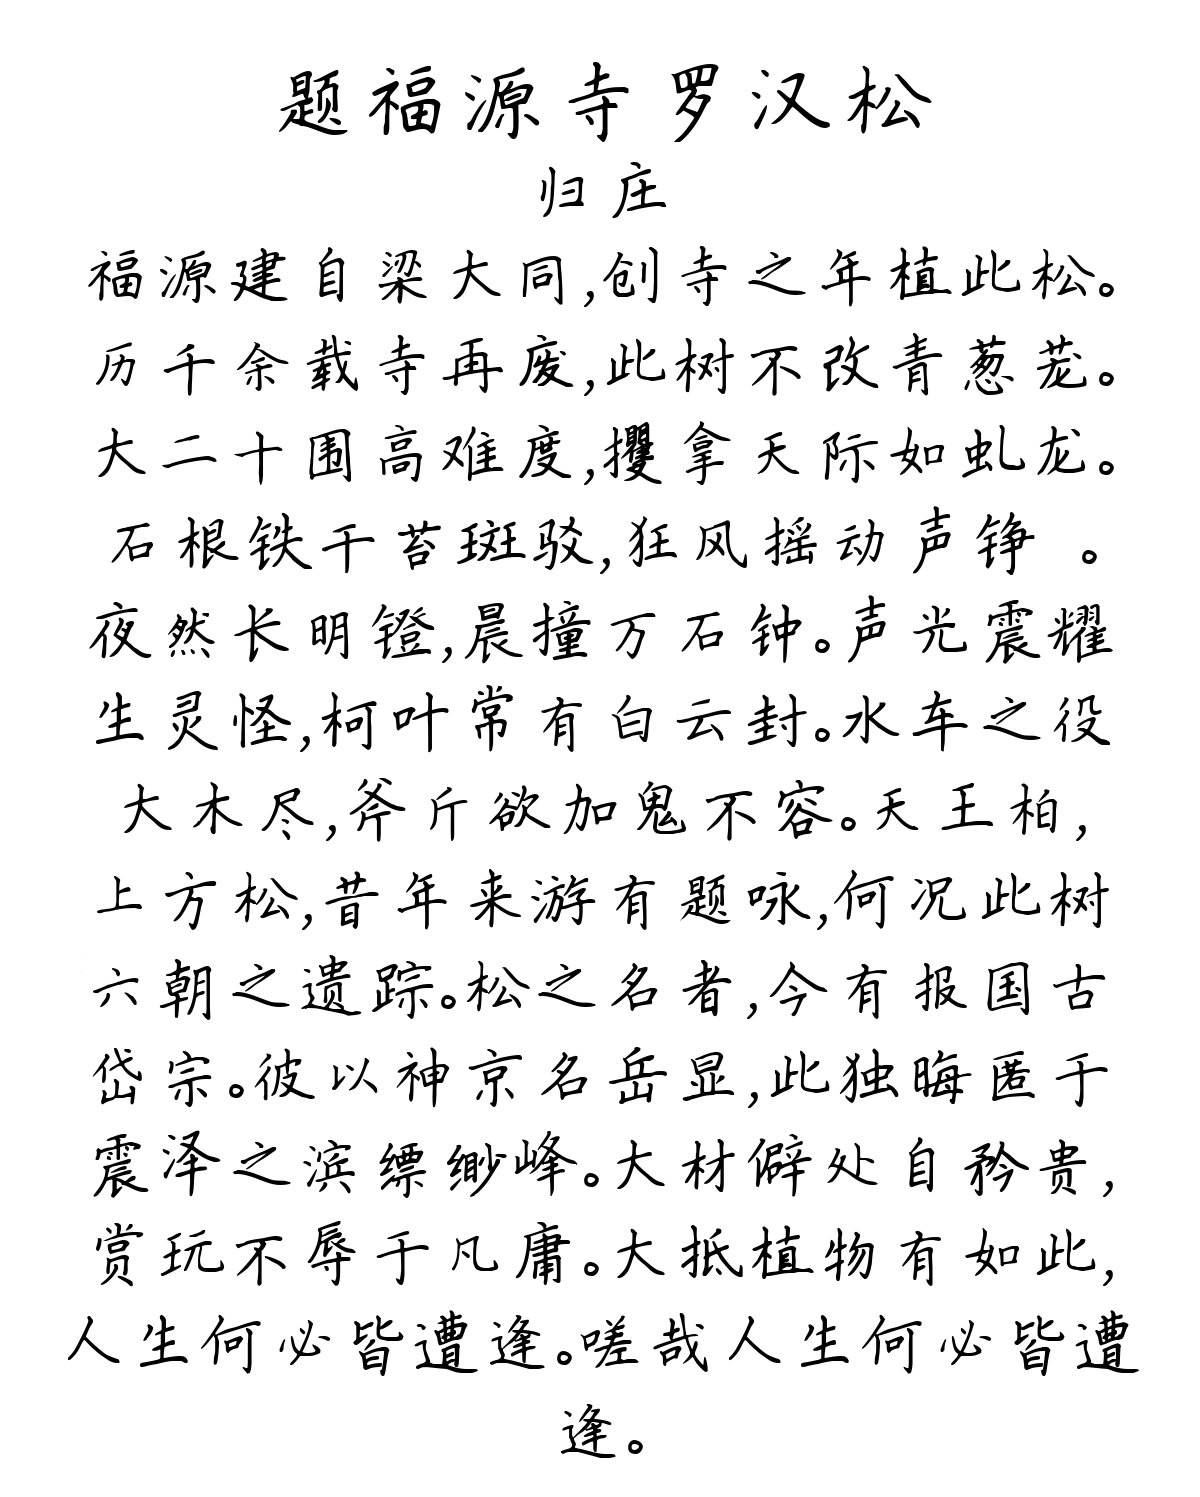 题福源寺罗汉松
归庄
福源建自梁大同,创寺之年植此松。
历千余载寺再废,此树不改青葱茏。
大二十围高难度,攫拿天际如虬龙。
石根铁干苔斑驳,狂风摇动声铮 。
夜然长明镫,晨撞万石钟。声光震耀
生灵怪,柯叶常有白云封。水车之役
大木尽,斧斤欲加鬼不容。天王柏,
上方松,昔年来游有题咏,何况此树
六朝之遗踪。松之名者,今有报国古
岱宗。彼以神京名岳显,此独晦匿于
震泽之滨缥缈峰。大材僻处自矜贵,
赏玩不辱于凡庸。大抵植物有如此,
人生何必皆遭逢。嗟哉人生何必皆遭
逢。